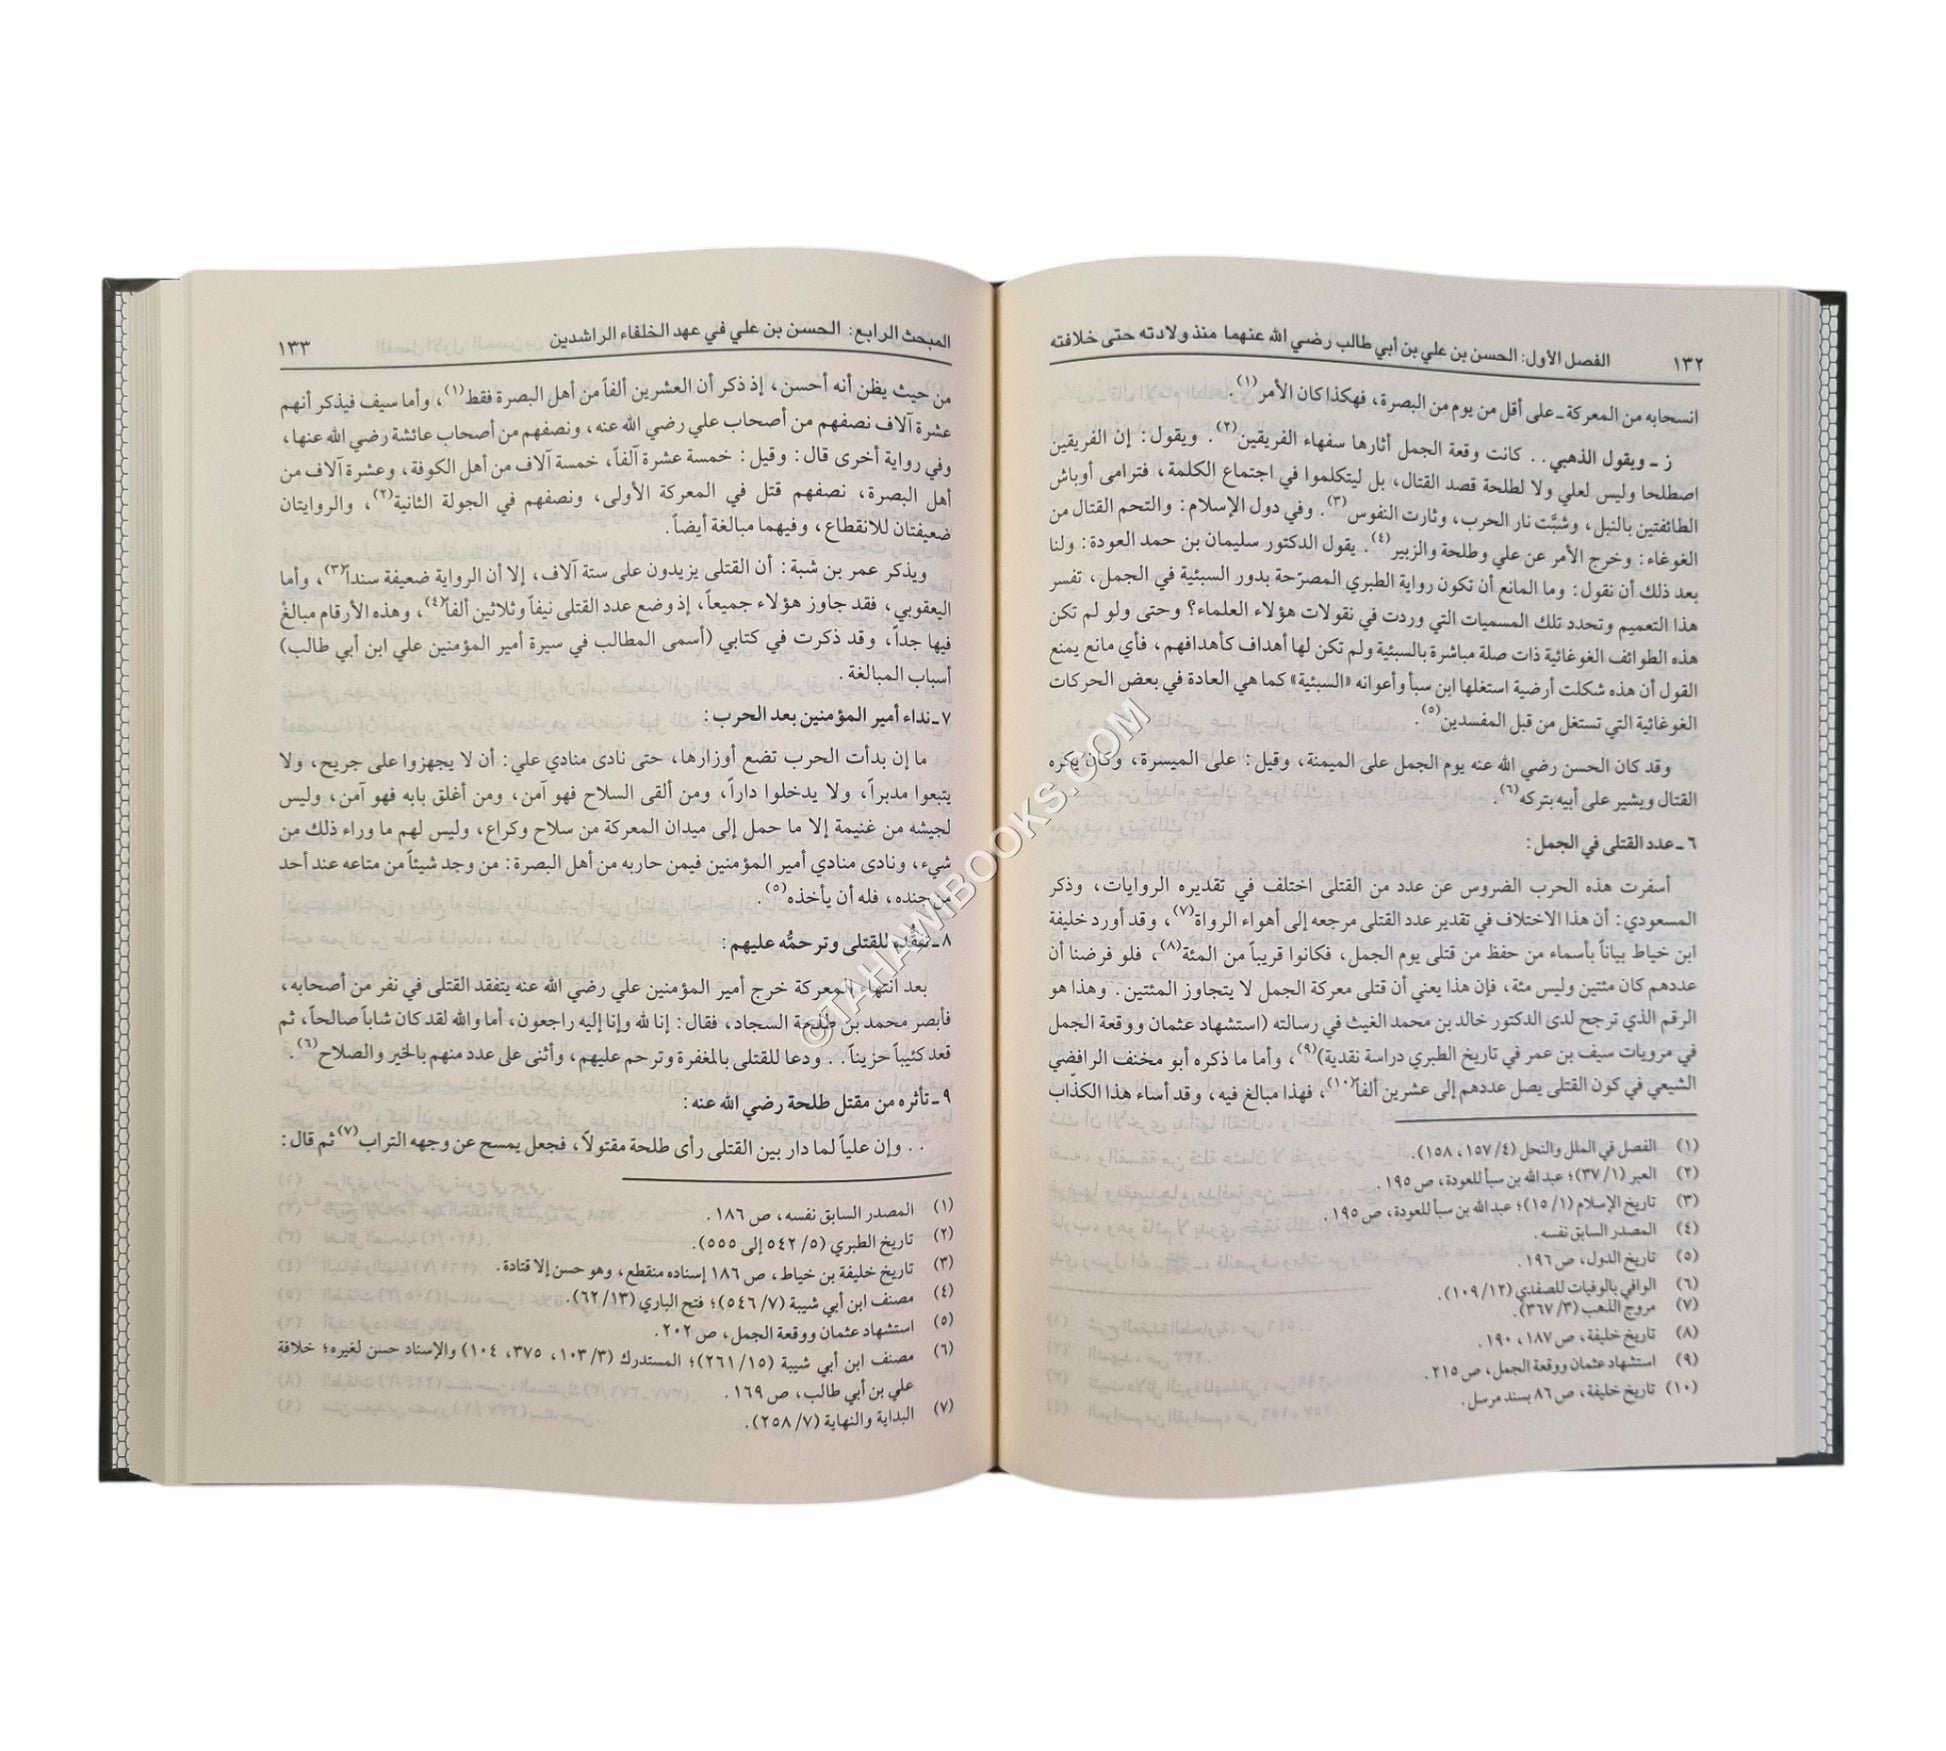 ١٣٢ الفصل الأول: الحسن بن علي بن أبي طالب رضي الله عنهما منذ ولادته حتى خلافته
انسحابه من المعركة ـ على أقل من يوم من البصرة، فهكذا كان الأمر(١).
ز ـ ويقول الذهبي.. كانت وقعة الجمل أثارها سفهاء الفريقين(٢). ويقول: إن الفريقين
اصطلحا وليس لعلي ولا لطلحة قصد القتال، بل ليتكلموا في اجتماع الكلمة، فترامى أوباش
الطائفتين بالنبل، وشبَّت نار الحرب، وثارت النفوس(٣). وفي دول الإسلام: والتحم القتال من
الغوغاء: وخرج الأمر عن علي وطلحة والزبير(٤). يقول الدكتور سليمان بن حمد العودة: ولنا
بعد ذلك أن نقول: وما المانع أن تكون رواية الطبري المصرّحة بدور السبئية في الجمل، تفسر
هذا التعميم وتحدد تلك المسميات التي وردت في نقولات هؤلاء العلماء؟ وحتى ولو لم تكن
هذه الطوائف الغوغائية ذات صلة مباشرة بالسبئية ولم تكن لها أهداف كأهدافهم، فأي مانع يمنع
القول أن هذه شكلت أرضية استغلها ابن سبأ وأعوانه «السبئية» كما هي العادة في بعض الحركات
الغوغائية التي تستغل من قبل المفسدين(٥).
وقد كان الحسن رضي الله عنه يوم الجمل على الميمنة، وقيل: على الميسرة، وكان يكره
القتال ويشير على أبيه بتركه(٦).
٦ ـ عدد القتلى في الجمل:
أسفرت هذه الحرب الضروس عن عدد من القتلى اختلف في تقديره الروايات، وذكر
المسعودي: أن هذا الاختلاف في تقدير عدد القتلى مرجعه إلى أهواء الرواة(٧)، وقد أورد خليفة
ابن خياط بياناً بأسماء من حفظ من قتلى يوم الجمل، فكانوا قريباً من المئة(٨)، فلو فرضنا أن
عددهم كان مئتين وليس مئة، فإن هذا يعني أن قتلى معركة الجمل لا يتجاوز المئتين. وهذا هو
الرقم الذي ترجح لدى الدكتور خالد بن محمد الغيث في رسالته (استشهاد عثمان ووقعة الجمل
في مرويات سيف بن عمر في تاريخ الطبري دراسة نقدية)(٩)، وأما ما ذكره أبو مخنف الرافضي
الشيعي في كون القتلى يصل عددهم إلى عشرين ألفاً(١٠)، فهذا مبالغ فيه، وقد أساء هذا الكذّاب
(١) الفصل في الملل والنحل (٤/١٥٧، ١٥٨).
(٢) العبر (١/٣٧)؛ عبدالله بن سبأ للعودة، ص ١٩٥.
(٣) تاريخ الإسلام (١/١٥)؛ عبدالله بن سبأ للعودة، ص ١٩٥.
(٤) المصدر السابق نفسه.
(٥) تاريخ الدول، ص ١٩٦.
(٦) الوافي بالوفيات للصفدي (١٢/١٠٩).
(٧) مروج الذهب (٣/٣٦٧).
(٨) تاريخ خليفة، ص ١٨٧، ١٩٠.
(٩) استشهاد عثمان ووقعة الجمل، ص ٢١٥.
(١٠) تاريخ خليفة، ص ٨٦ بسند مرسل.
المبحث الرابع: الحسن بن علي في عهد الخلفاء الراشدين ١٣٣
من حيث يظن أنه أحسن، إذ ذكر أن العشرين ألفاً من أهل البصرة فقط(١)، وأما سيف فيذكر أنهم
عشرة آلاف نصفهم من أصحاب علي رضي الله عنه، ونصفهم من أصحاب عائشة رضي الله عنها،
وفي رواية أخرى قال: وقيل: خمسة عشرة ألفاً، خمسة آلاف من أهل الكوفة، وعشرة آلاف من
أهل البصرة، نصفهم قتل في المعركة الأولى، ونصفهم في الجولة الثانية(٢)، والروايتان
ضعيفتان للانقطاع، وفيهما مبالغة أيضاً.
ويذكر عمر بن شبة: أن القتلى يزيدون على ستة آلاف، إلا أن الرواية ضعيفة سنداً(٣)، وأما
اليعقوبي، فقد جاوز هؤلاء جميعاً، إذ وضع عدد القتلى نيفاً وثلاثين ألفاً(٤)، وهذه الأرقام مبالغٌ
فيها جداً، وقد ذكرت في كتابي (أسمى المطالب في سيرة أمير المؤمنين علي ابن أبي طالب)
أسباب المبالغة.
٧ ـ نداء أمير المؤمنين بعد الحرب:
ما إن بدأت الحرب تضع أوزارها، حتى نادى منادي علي: أن لا يجهزوا على جريح، ولا
يتبعوا مدبراً، ولا يدخلوا داراً، ومن ألقى السلاح فهو آمن، ومن أغلق بابه فهو آمن، وليس
لجيشه من غنيمة إلا ما حمل إلى ميدان المعركة من سلاح وكراع، وليس لهم ما وراء ذلك من
شيء، ونادى منادي أمير المؤمنين فيمن حاربه من أهل البصرة: من وجد شيئاً من متاعه عند أحد
من جنده، فله أن يأخذه(٥).
٨ ـ تفقُّده للقتلى وترحمُّه عليهم:
بعد انتهاء المعركة خرج أمير المؤمنين علي رضي الله عنه يتفقد القتلى في نفر من أصحابه،
فأبصر محمد بن طلحة السجاد، فقال: إنا لله وإنا إليه راجعون، أما والله لقد كان شاباً صالحاً، ثم
قعد كئيباً حزيناً.. ودعا للقتلى بالمغفرة وترحم عليهم، وأثنى على عدد منهم بالخير والصلاح(٦).
٩ ـ تأثره من مقتل طلحة رضي الله عنه:
.. وإن علياً لما دار بين القتلى رأى طلحة مقتولاً، فجعل يمسح عن وجهه التراب(٧) ثم قال:
(١) المصدر السابق نفسه، ص ١٨٦.
(٢) تاريخ الطبري (٥/٥٤٢ إلى ٥٥٥).
(٣) تاريخ خليفة بن خياط، ص ١٨٦ إسناده منقطع، وهو حسن إلا قتادة.
(٤) مصنف ابن أبي شيبة (٧/٥٤٦)؛ فتح الباري (١٣/٦٢).
(٥) استشهاد عثمان ووقعة الجمل، ص ٢٠٢.
(٦) مصنف ابن أبي شيبة (١٥/٢٦١)؛ المستدرك (٣/١٠٣، ٣٧٥، ١٠٤) والإسناد حسن لغيره؛ خلافة
علي بن أبي طالب، ص ١٦٩.
(٧) البداية والنهاية (٧/٢٥٨).
© TAHAWIBOOKS.COM